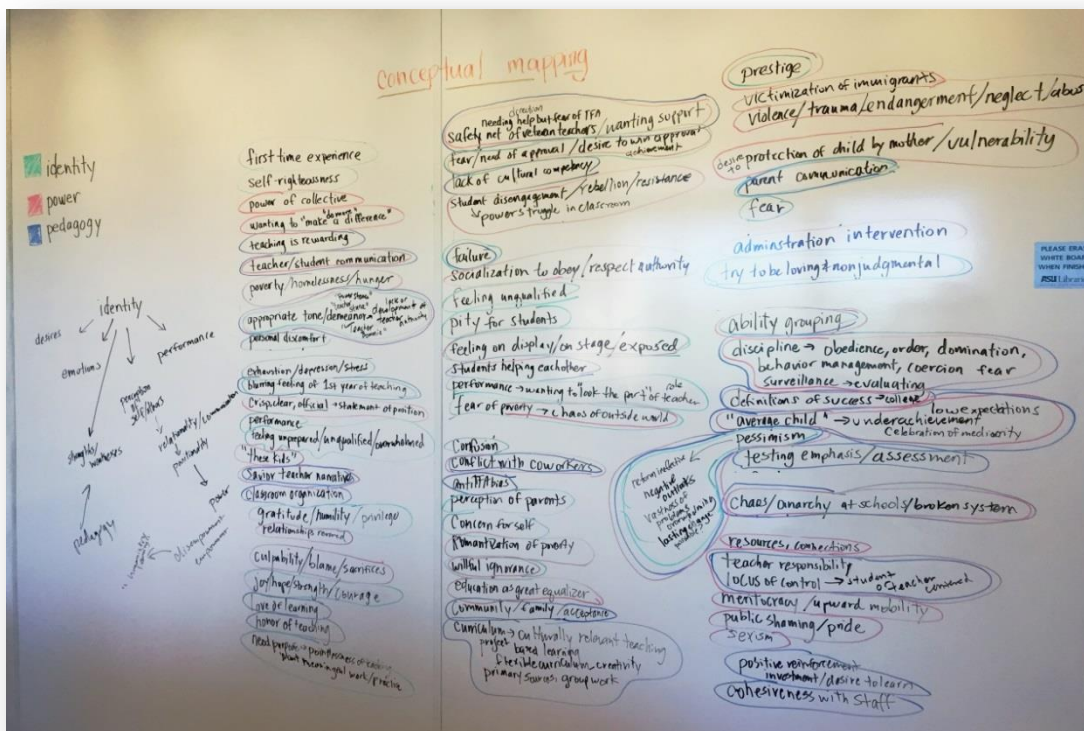 conceptual mapping
identity
power
pedagogy
identity
desires
emotions
performance
perception of self/others
relationality/communication
positionality
power
disempowerment
empowerment
pedagogy
first time experience
self-righteousness
power of collective
"damage"
wanting to "make a difference"
teaching is rewarding
teacher/student communication
poverty/homelessness/hunger
appropriate tone/demeanor
lack of development of teacher authority
personal discomfort
exhaustion/depression/stress
blurring feeling of 1st year of teaching
Crisp, clear, official → statement of position
performance
feeling unprepared/unqualified/overwhelmed
"these kids"
Savior teacher narrative
Classroom organization
gratitude/humility/privilege
relationships
culpability/blame/sacrifices
joy/hope/strength/courage
love of learning
honor of teaching
need purpose → pointlessness of
meaningful work/practice
direction
needing help but fear of TFA
safety net of veteran teachers/wanting support
fear/need of approval/desire to win approval
achievement
lack of cultural competency
student disengagement/rebellion/resistance
↳ powers truggle in classroom
failure
socialization to obey/respect authority
feeling unqualified
pity for students
feeling on display/on stage/exposed
students helping eachother
performance → wanting to "look the part" of teacher role
fear of poverty → chaos of outside world
Confusion
conflict with coworkers
perception of parents
Concern for self
Romantization of
willful ignorance
education as great equalizer
Community/family/acceptance
curriculum → culturally relevant teaching
project based learning
flexible curriculum, creativity
primary sources, group work
prestige
victimization of immigrants
violence/trauma/endangerment/neglect/abus
desire to protection of child by mother/vulnerability
parent communication
fear
adminstration intervention
try to be loving + nonjudgmental
ability grouping
discipline → obedience, order, domination,
behavior management, coercion fear
surveillance → evaluating
definitions of success → college
"average child" → underachievement
low expectations
Celebration of mediocrity
pessimism
testing emphasis/assessment
negative outlooks
vastness of problems
overwhelming
Chaos/anarchy at schools/broken system
resources, connections
teacher responsibility
locus of control → student
or teacher centered
meritocracy/upward mobility
public shaming/pride
sexism
positive reinforcement
investment/desire to learn
cohesiveness with staff
PLEASE ERA
WHITE BOAR
WHEN FINISH
ASU Librar